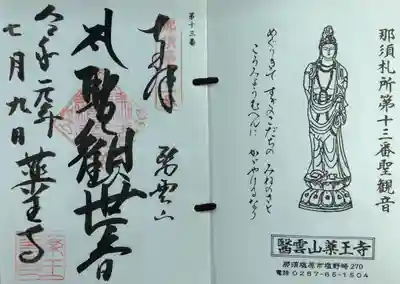 那須札所第十三番聖観音
めぐりきて すぎのこだちの みねのさと
こうみょうむへんに かがやけるなり
醫雲山薬王寺
那須塩原市塩野崎270
電話 0287-65-1504
第十三番
奉拝
醫雲山
大聖観世音
令和元年
七月九日
薬王寺